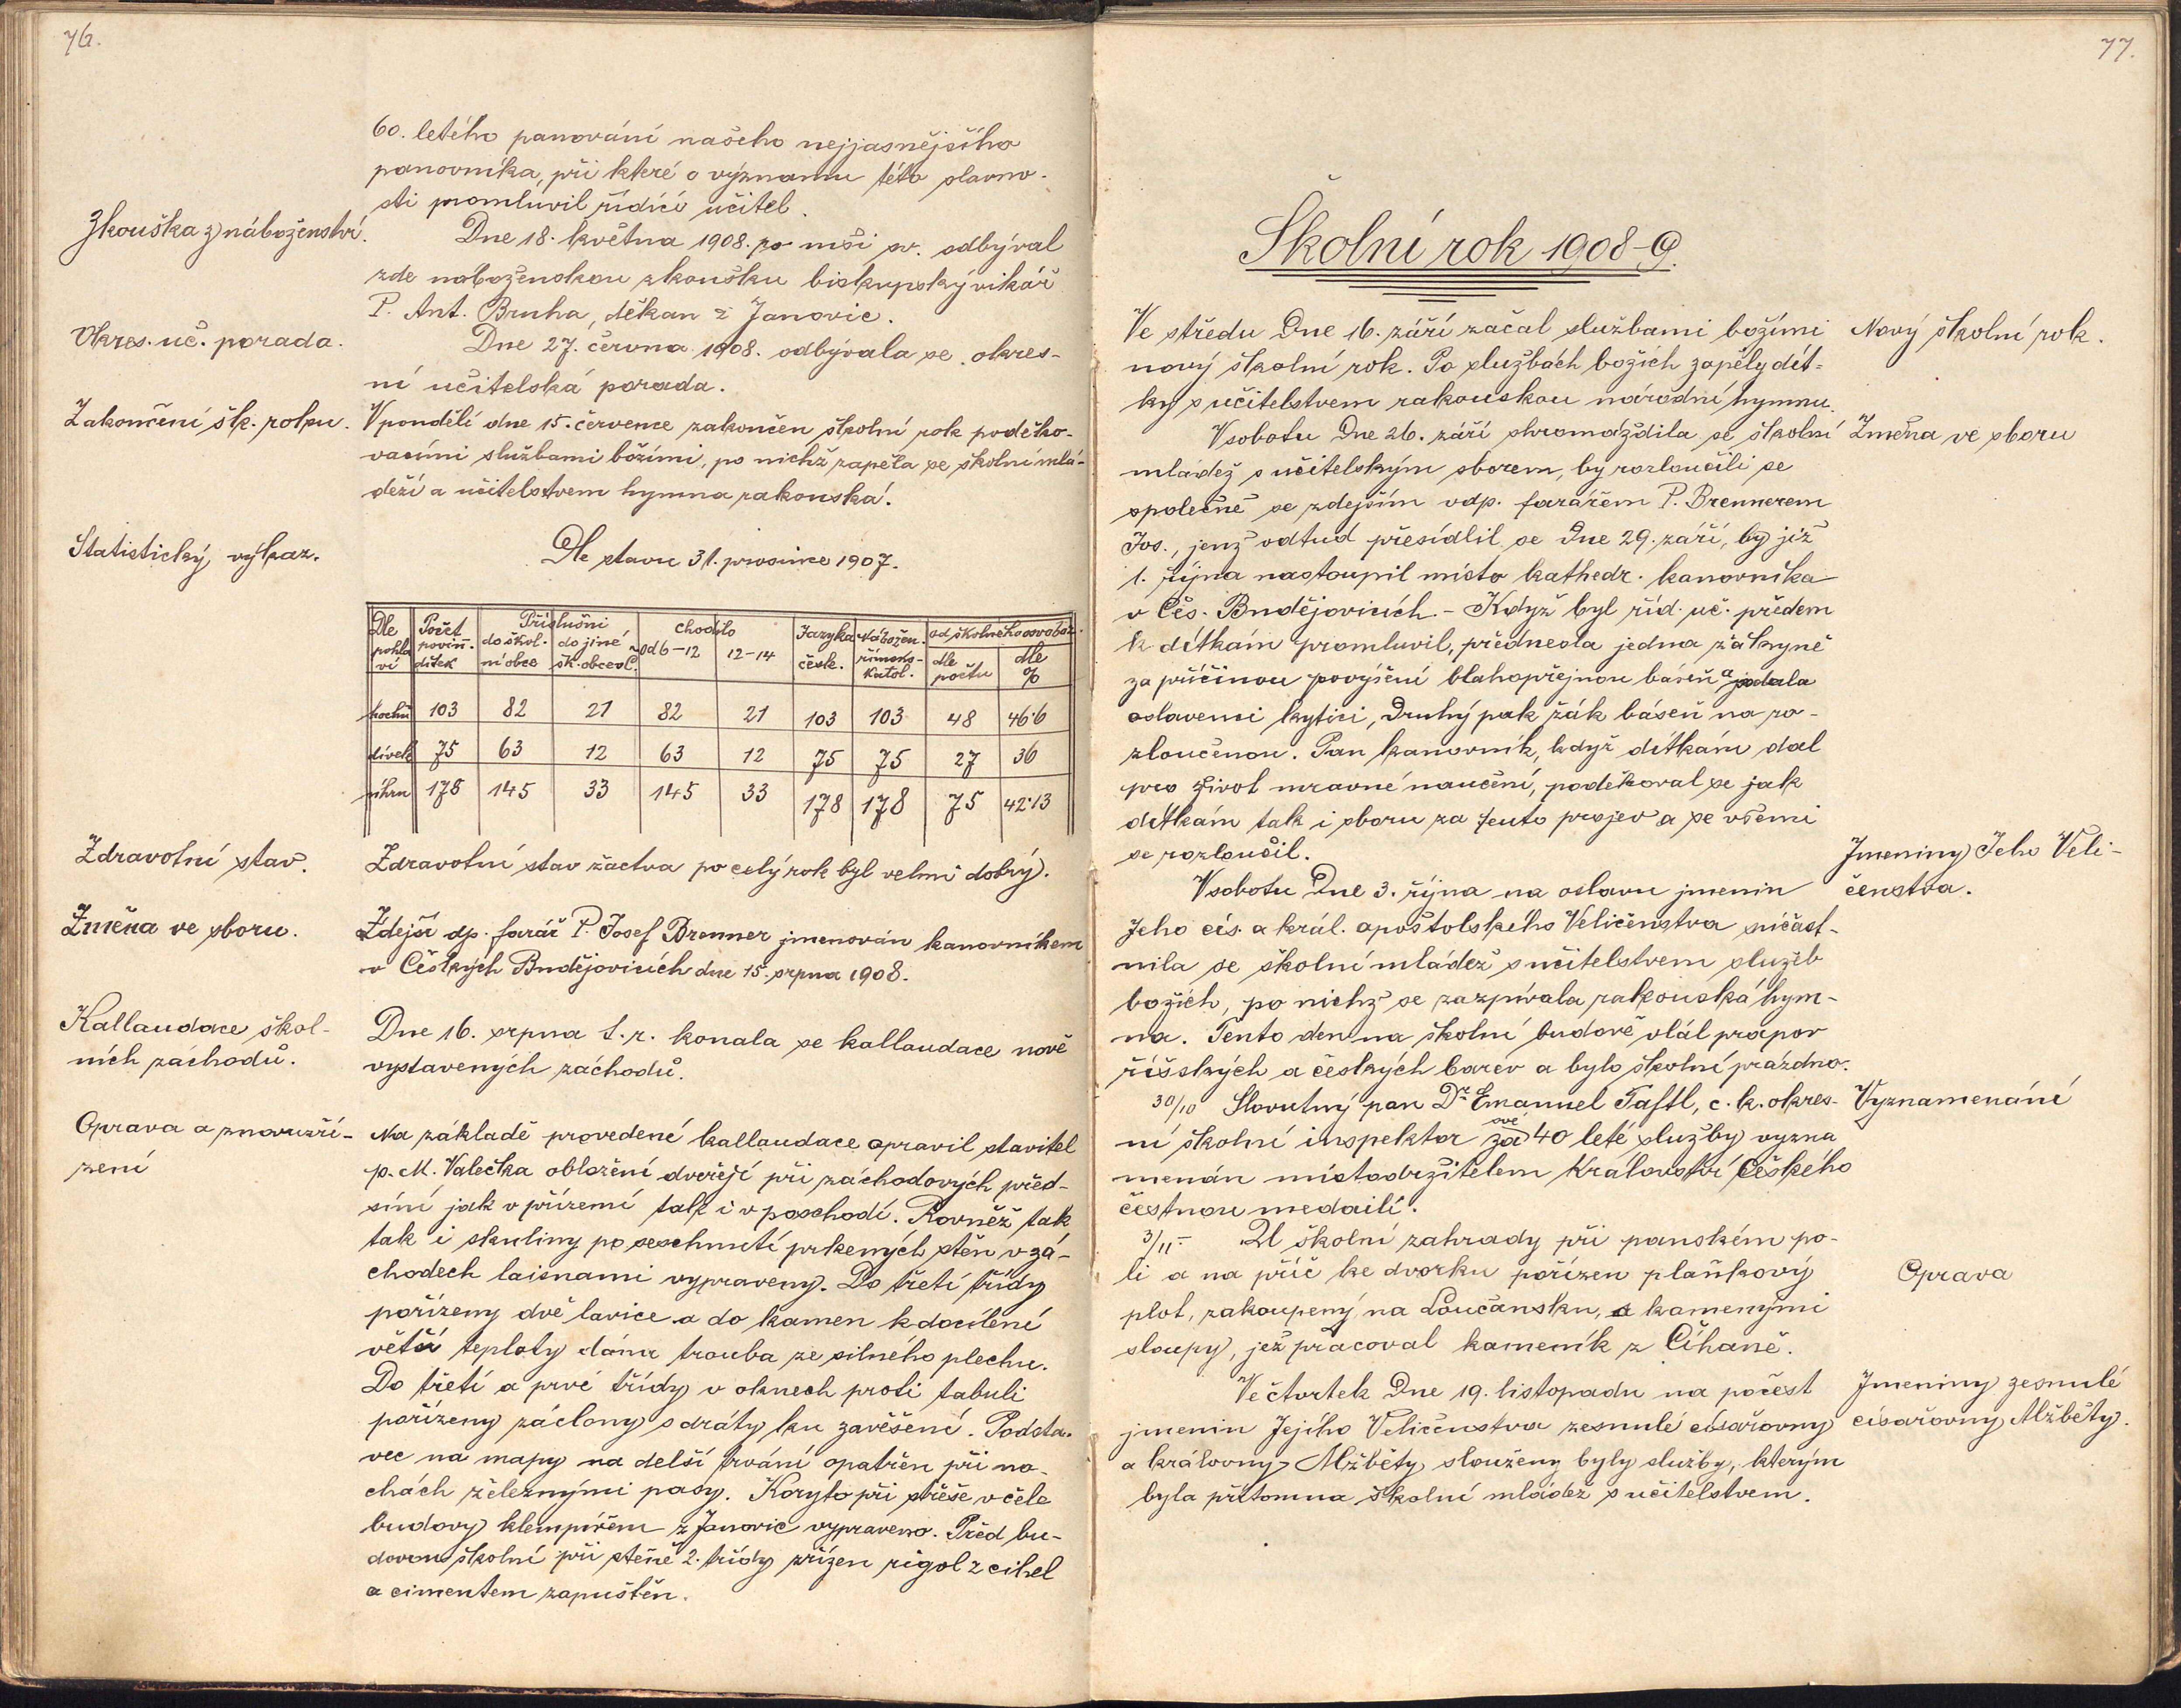 76.
60. letého panování našeho nejjasnějšího
panovníka, při které o významu této slavno-
sti promluvil řídící učitel.
Zkouška z náboženství.
Dne 18. května 1908. po mši sv. odbýval
zde náboženskou zkoušku biskupský vikář
P. Ant. Bruha, děkan z Janovic.
Okres. uč. porada.
Dne 27. června 1908. odbývala se okres-
ní učitelská porada.
Zakončení šk. roku.
V pondělí dne 15. července zakončen školní rok poděko-
vacími službami božími, po nichž zapěta se školní mlá-
deží a učitelstvem hymna rakouská.
Statistický výkaz.
Dle stavu 31. prosince 1907.
Dle pohlaví | Počet povinn. dítek | Příslušní do škol. ní obce | do jiné šk. obce vč. | chodilo od 6-12 | 12-14 | Jazyka česk. | Nábožen. římsko-katol. | od školného osvoboz. dle počtu | dle %
hochů 103 82 21 82 21 103 103 48 46·6
dívek 75 63 12 63 12 75 75 27 36
úhrn 178 145 33 145 33 178 178 75 42·13
Zdravotní stav.
Zdravotní stav žactva po celý rok byl velmi dobrý.
Změna ve sboru.
Zdejší dp. farář P. Josef Brenner jmenován kanovníkem
v Českých Budějovicích dne 15. srpna 1908.
Kallaudace škol-
ních záchodů.
Dne 16. srpna t. r. konala se kallaudace nově
vystavených záchodů.
Oprava a znovuzří-
zení
Na základě provedené kallaudace opravil stavitel
p. M. Valečka obložení dveřejí při záchodových před-
síní jak v přízemí tak i v poschodí. Rovněž tak
tak i skuliny po seschnutí prkenných stěn v zá-
chodech laisnami vypraveny. Do třetí třídy
pořízeny dvě lavice a do kamen k docílení
větší teploty dána trouba ze silného plechu.
Do třetí a prvé třídy v oknech proti tabuli
pořízeny záclony s dráty ku zavěšení. Podsta-
vec na mapy na delší trvání opatřen při no-
chách železnými pasy. Koryto při střeše v čele
budovy klempířem z Janovic vypraveno. Před bu-
dovou školní při stěně 2. třídy zřízen rigol z cihel
a cimentem zapuštěn.
77.
Školní rok 1908-9.
Ve středu Dne 16. září začal službami božími
Nový školní rok.
nový školní rok. Po službách božích zapěly dít-
ky s učitelstvem rakouskou národní hymnu.
V sobotu Dne 26. září shromáždila se školní
Změna ve sboru
mládež s učitelským sborem, by rozloučili se
společně se zdejším vdp. farářem P. Brennerem
Jos., jenž odtud přesídlil se Dne 29. září, by již
1. října nastoupil místo kathedr. kanovníka
v Čes. Budějovicích. - Když byl říd. uč. předem
k dítkám promluvil, přednesla jedna žákyně
za příčinou povýšení blahopřejnou báseň a podala
oslavenci kytici, Druhý pak žák báseň na ro-
zloučenou. Pan kanovník, když dítkám dal
pro život mravné naučení, poděkoval se jak
dítkám tak i sboru za tento projev a se všemi
se rozloučil.
Jmeniny Jeho Veli-
čenstva.
V sobotu Dne 3. října na oslavu jmenin
Jeho cís. a král. apoštolského Veličenstva súčast-
nila se školní mládež s učitelstvem služeb
božích, po nichž se zazpívala rakouská hym-
na. Tento den na školní budově vlál prapor
říšských a českých barev a bylo školní prázdno.
30/10 Slovutný pan Dr. Emanuel Taftl, c. k. okres-
Vyznamenání
ní školní inspektor za 40 leté ové služby vyzna
menán místodržitelem Království Českého
čestnou medailí.
3/11 - U školní zahrady při panském po-
li a na příč ke dvorku pořízen plaňkový
Oprava
plot, zakoupený na Loučansku, a kamenými
sloupy, jež pracoval kameník z Číhaně.
Ve čtvrtek Dne 19. listopadu na počest
Jmeniny zesnulé
císařovny Alžběty.
jmenin Jejího Veličenstva zesnulé císařovny
a královny Alžběty slouženy byly služby, kterým
byla přítomna školní mládež s učitelstvem.